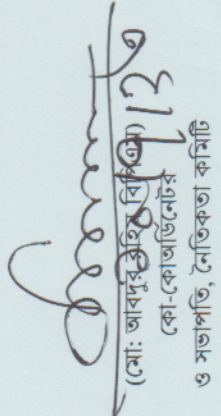 (মো: আবদুর রহিম বিপিএম)
কো-কোঅর্ডিনেটর
ও সভাপতি, নৈতিকতা কমিটি